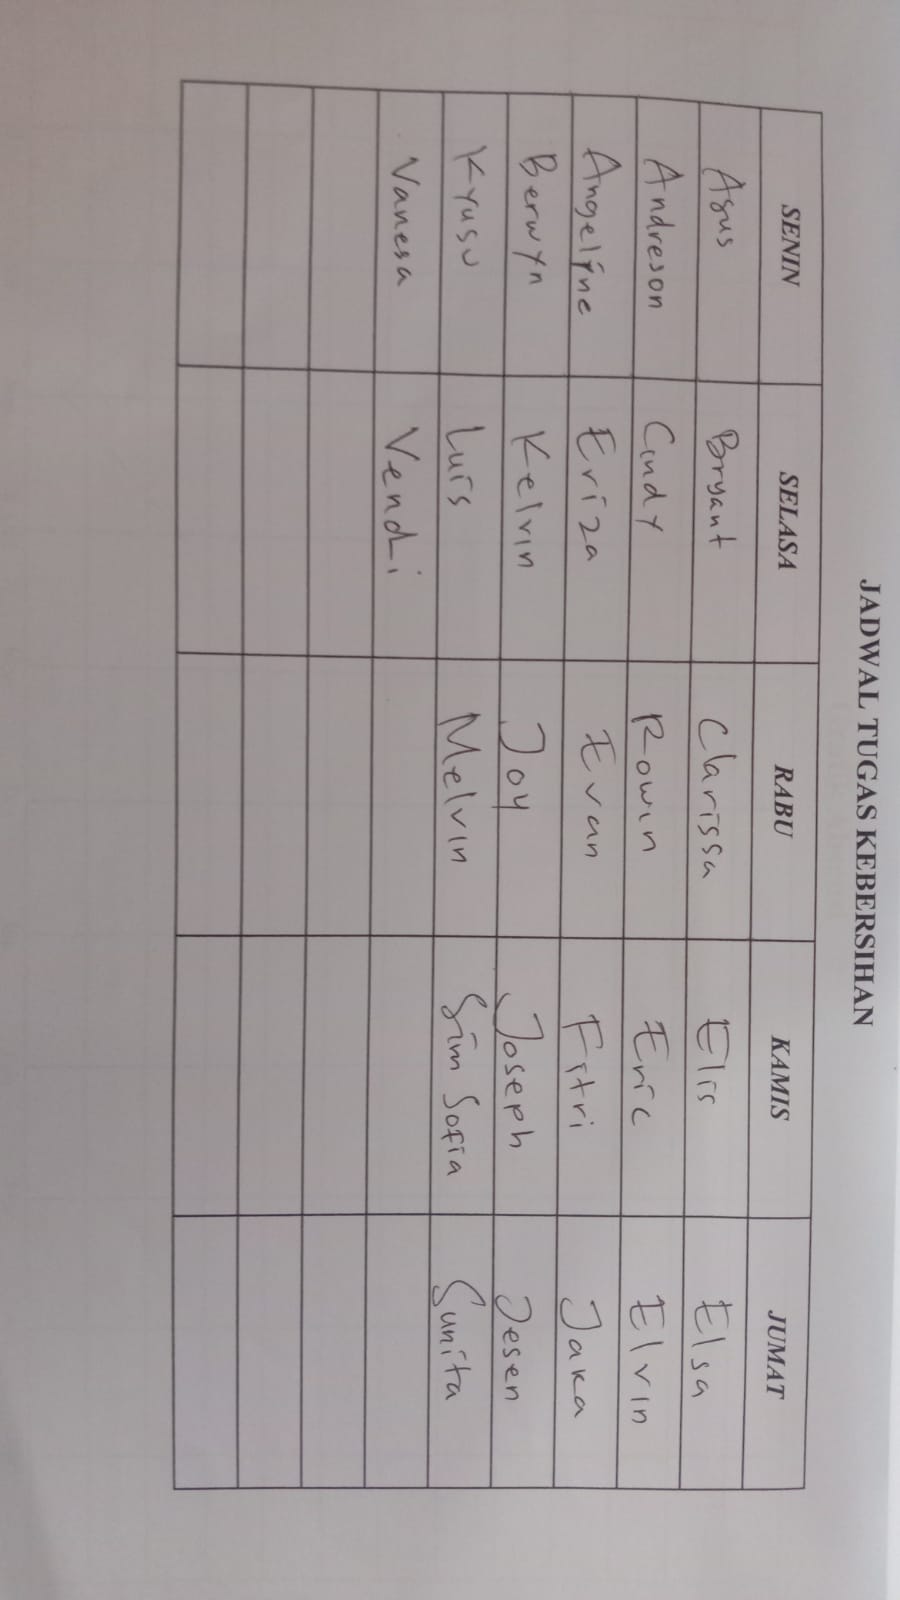 JADWAL TUGAS KEBERSIHAN
SENIN SELASA RABU KAMIS JUMAT
Agus Bryant Clarissa Elis Elsa
Andreson Cindy Rowin Eric Elvin
Angeline Eriza Evan Fitri Jaka
Berwyn Kelvin Joy Joseph Jesen
Kyusu Luis Melvin Sim Sofia Sunita
Vanesa Vendi